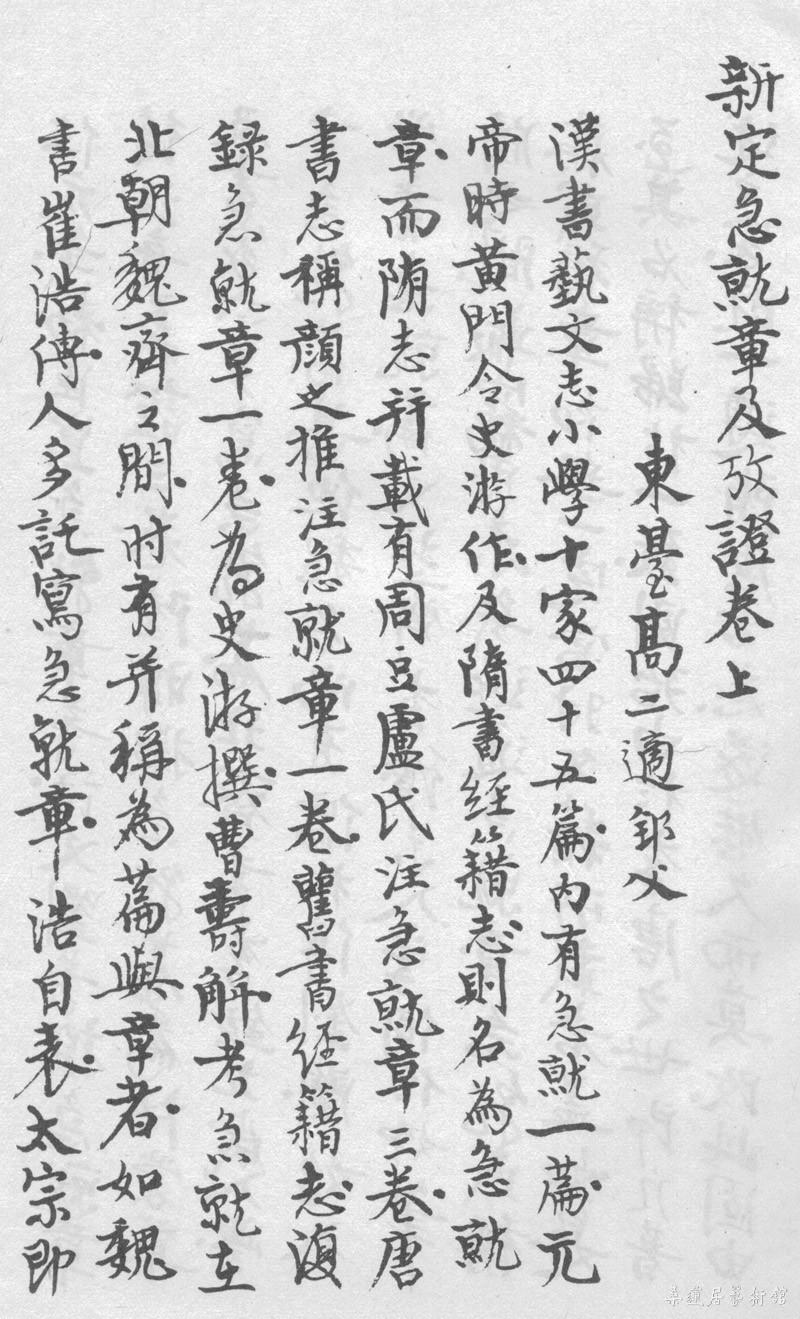 新定急就章及攷證卷上
東臺高二適
漢書藝文志小學十家四十五篇內有急就一篇元
帝時黃門令史游作及隋書經籍志則名為急就
章而隋志并載有周豆盧氏注急就章三卷唐
書志稱顏之推注急就章一卷舊書經籍志復
錄急就章一卷為史游撰曹壽解考急就在
北朝魏齊之間时有并稱為篇與章者如魏
書崔浩傳人多託寫急就章浩自表太宗即